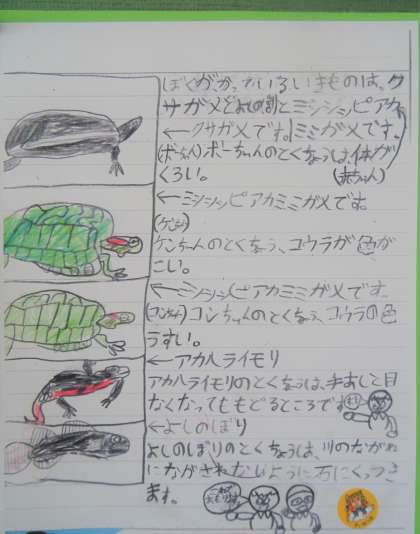 ぼくが、かっているいきものは、ク
サガメとよしの割とミシシッピアカ
←クサガメです。ミミガメです。
(ボーちゃん)ボーちゃんのとくちょうは、体が
くろい。
(赤ちゃん)
←ミシシッピアカミミガメです。
(ケンケン)
ケンちゃんのとくちょう、コウラが色が
こい。
←ミシシッピアカミミガメです。
コンちゃんのとくちょう、コウラの色
うすい。
←アカハライモリ
アカハライモリのとくちょうは、手あしと目
なくなってももどるところです
←よしのぼり
よしのぼりのとくちょうは、川のながれ
にながされないように石にくっつき
ます。